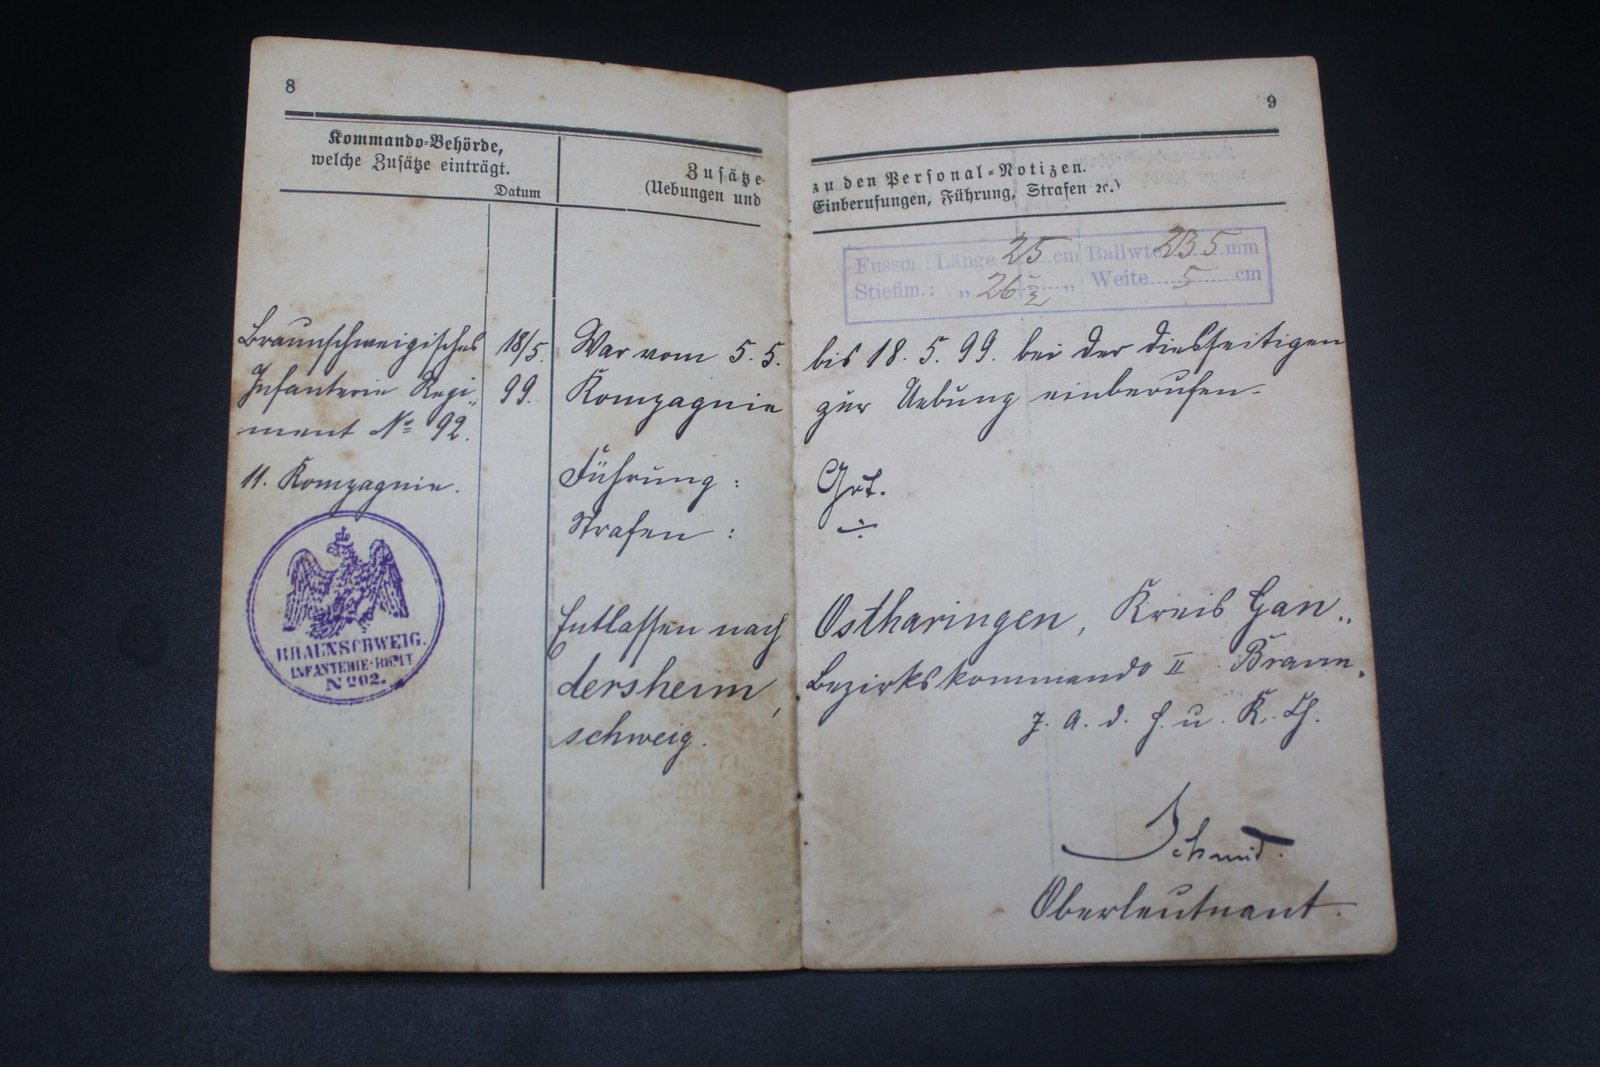 8
Kommando-Behörde,
welche Zusätze einträgt.
Datum
Zusätze
(Uebungen und
Braunschweigisches
Infanterie Regi„
ment No 92.
11. Kompagnie.
18/5.
99.
BRAUNSCHWEIG.
INFANTERIE-REGMT
No 92.
War vom 5. 5.
Kompagnie
Führung :
Strafen :
Entlassen nach
dersheim,
schweig.
9
zu den Personal-Notizen.
Einberufungen, Führung, Strafen ꝛc.)
Fussm.: Länge 25 cm Ballwte 235 mm
Stieflm.: „ 26 ½ „ Weite 5 cm
bis 18. 5. 99. bei der diesseitigen
zur Uebung einberufen.
Gut.
÷
Ostharingen, Kreis Gan„
Bezirkskommando II Braun„
J. A. d. H. u. K. Ch.
Schmid.
Oberleutnant.